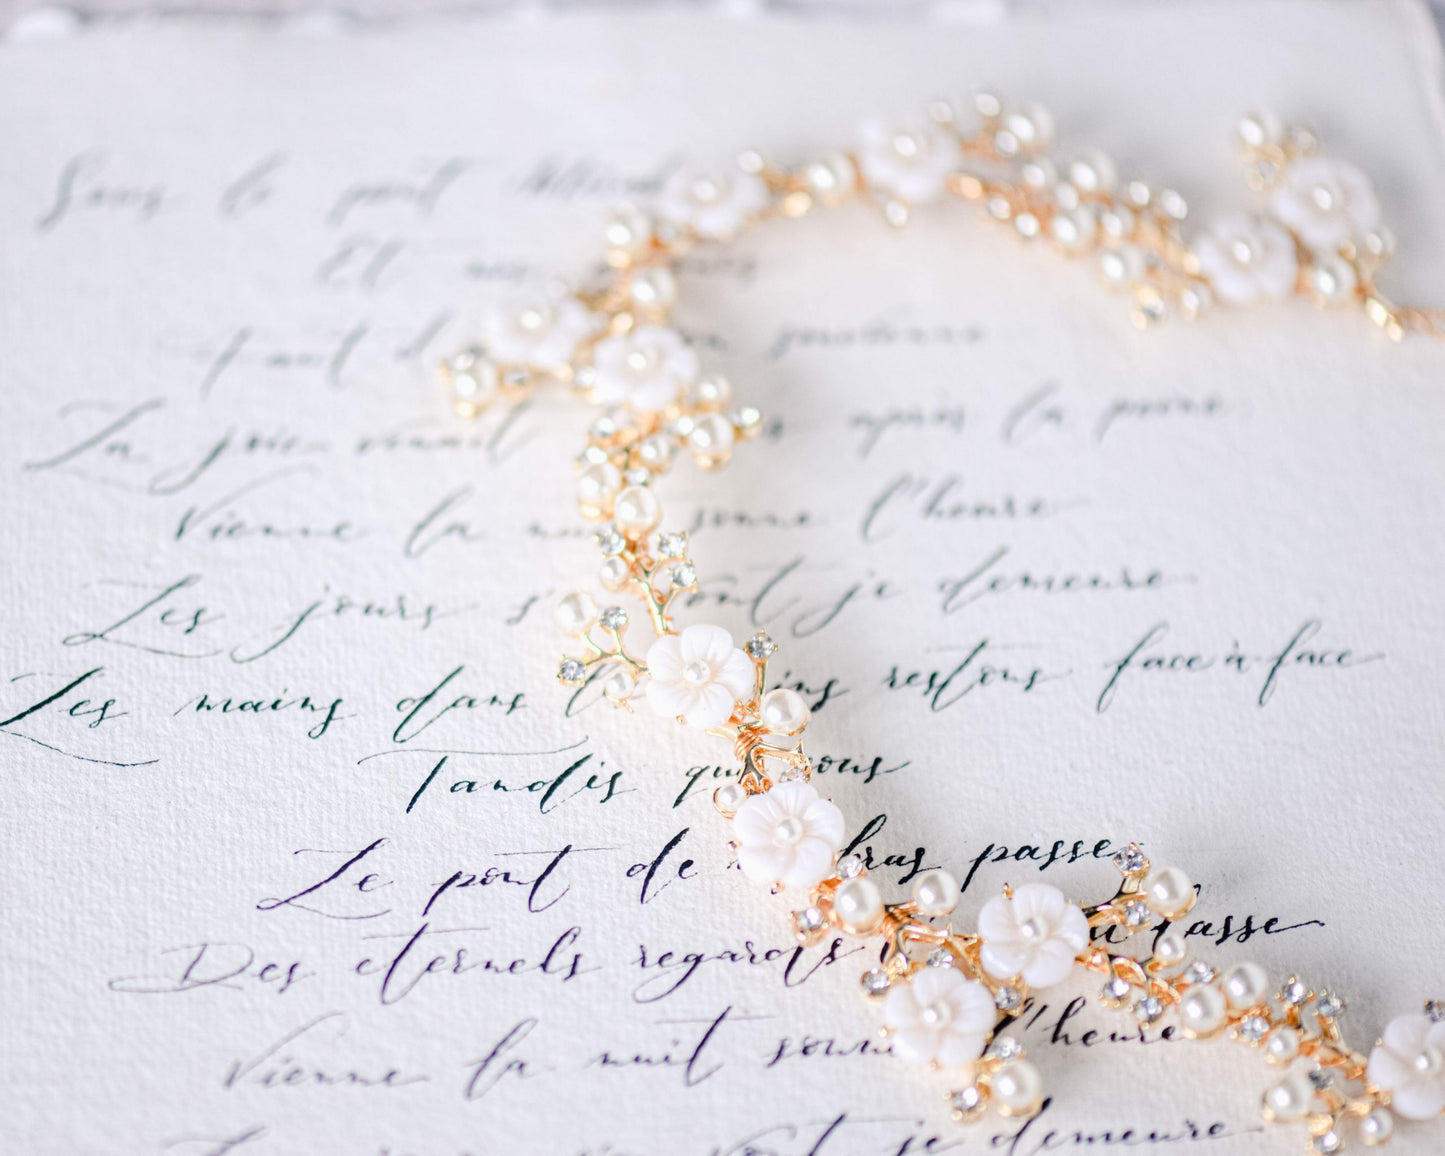 Sous le pont Mirabeau
Et nos amours
Faut
La joie venait après la peine
Vienne la nuit sonne l'heure
Les jours s' vont je demeure
Les mains dans restons face à face
Tandis que sous
Le pont de bras passe
Des eternels regards lasse
Vienne la nuit sonne l'heure
vont je demeure